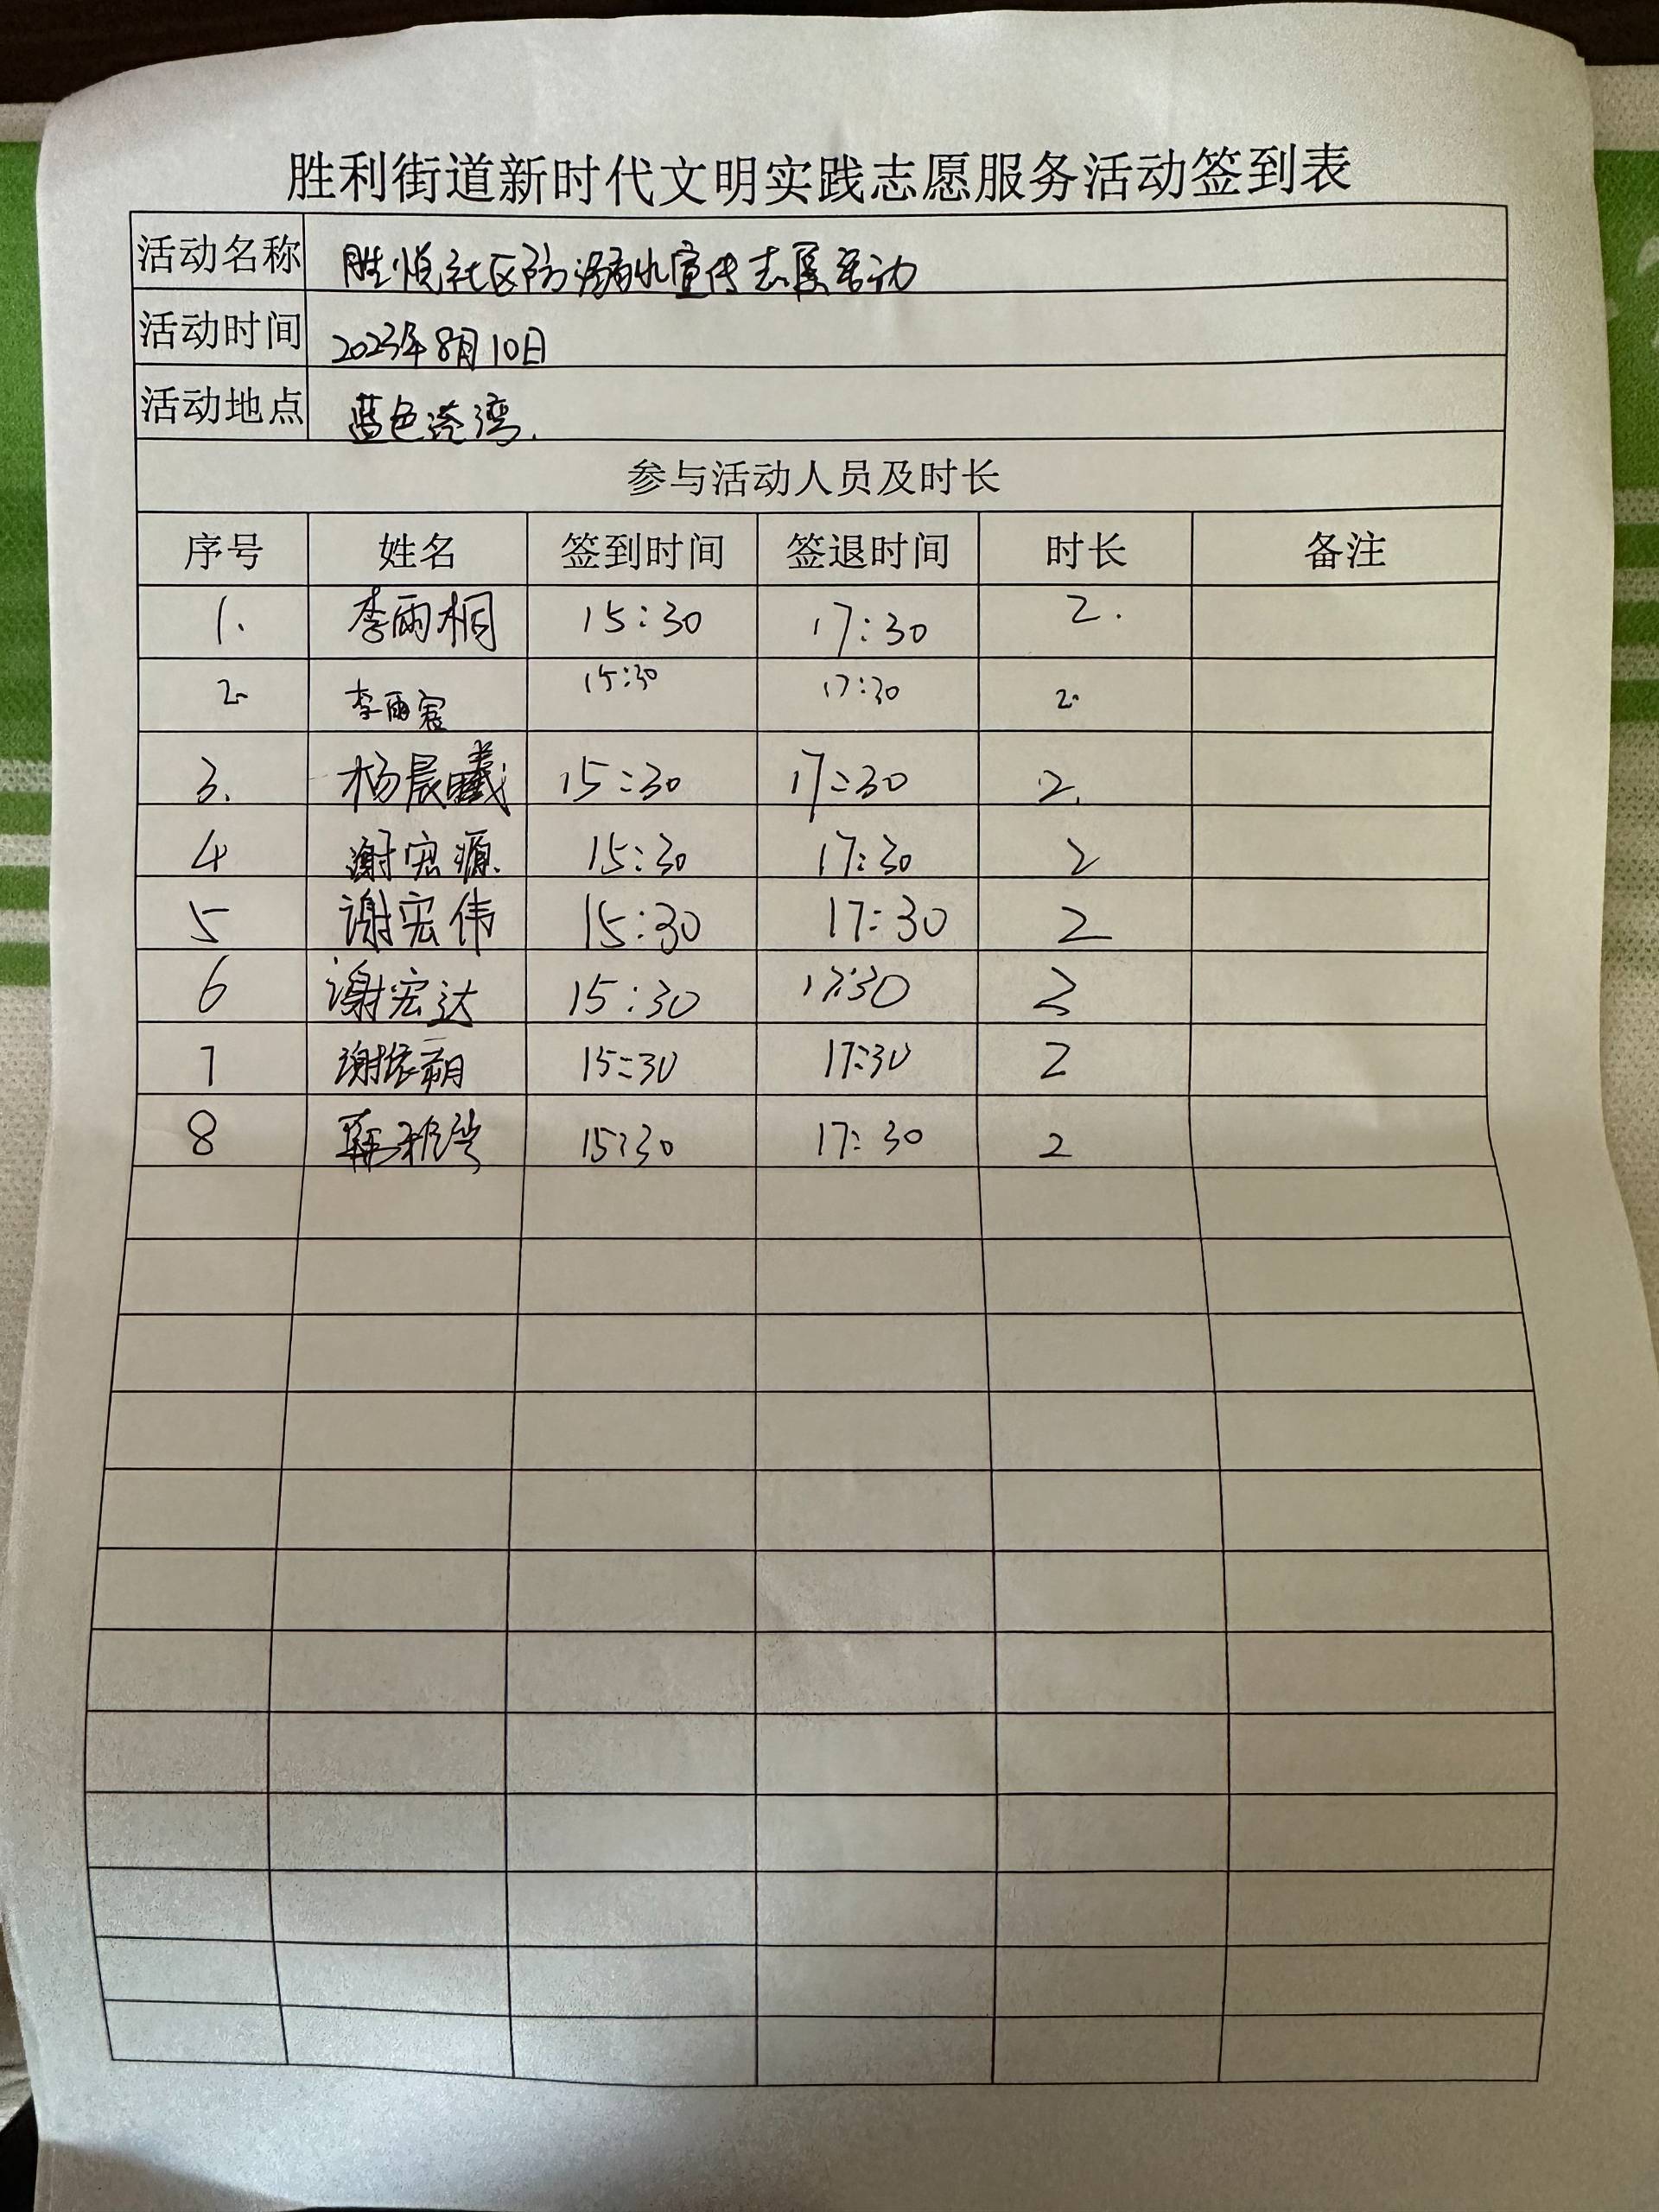 胜利街道新时代文明实践志愿服务活动签到表
活动名称 胜悦社区防溺水宣传志愿活动
活动时间 2023年8月10日
活动地点 蓝色港湾.
参与活动人员及时长
序号 姓名 签到时间 签退时间 时长 备注
1. 李雨桐 15:30 17:30 2.
2. 李雨宸 15:30 17:30 2.
3. 杨晨曦 15:30 17:30 2.
4 谢宏源. 15:30 17:30 2
5 谢宏伟 15:30 17:30 2
6 谢宏达 15:30 17:30 2
7 谢依朔 15:30 17:30 2
8 15:30 17:30 2